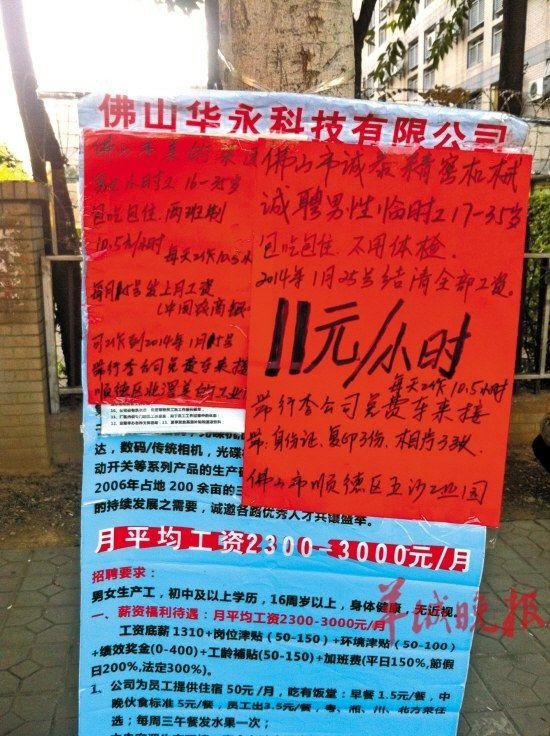 佛山华永科技有限公司
佛山市美的
小时工 16-35岁
包吃包住、两班制
10.5元/小时 每天工作10.5小时
每月15号发上月工资
(中国农商银
可工作到2014年1月15号
带行李公司免费车来接
顺德区北滘美的工业
佛山市诚 精密机械
诚聘男性临时工17-35岁
包吃包住、不用体检。
2014年1月25号结清全部工资。
11元/小时
每天工作10.5小时
带行李公司免费车来接
带:身份证、复印3份、相片3张
佛山市顺德区五沙工业园
达,数码/传统相机,光碟
动开关等系列产品的生产研
2006年占地 200 余亩的三
的持续发展之需要,诚邀各路优秀人才共镶盛举。
月平均工资2300-3000元/月
招聘要求:
男女生产工,初中及以上学历,16周岁以上,身体健康,无近视。
一、薪资福利待遇:月平均工资2300-3000元/月
工资底薪 1310+岗位津贴(50-150)+环境津贴(50-100)
+绩效奖金(0-400)+工龄补贴(50-150)+加班费(平日150%,節假
日200%,法定300%)。
1、公司为员工提供住宿 50元/月,吃有饭堂:早餐 1.5元/餐,中
晚伙食标准 5元/餐,员工出3.5元/餐,粤、湘、川、北方菜任
选;每周三午餐发水果一次;
羊城晚报